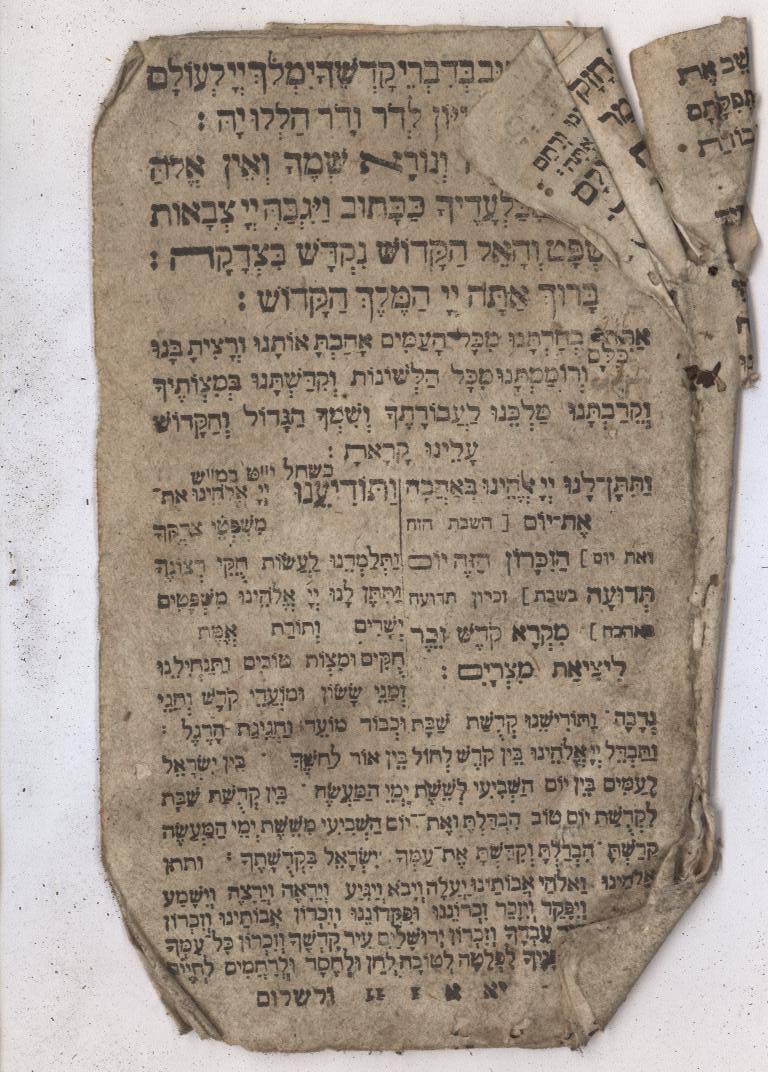 בְּדִבְרֵי קָדְשֶׁךָ יִמְלֹךְ יְיָ לְעוֹלָם
לְדֹר וָדֹר הַלְלוּיָהּ :
וְנוֹרָא שְׁמֶךָ וְאֵין אֱלוֹהַּ
מִבַּלְעָדֶיךָ כַּכָּתוּב וַיִּגְבַּהּ יְיָ צְבָאוֹת
בַּמִּשְׁפָּט וְהָאֵל הַקָּדוֹשׁ נִקְדָּשׁ בִּצְדָקָה :
בָּרוּךְ אַתָּה יְיָ הַמֶּלֶךְ הַקָּדוֹשׁ :
אַתָּה בְחַרְתָּנוּ מִכָּל־הָעַמִּים אָהַבְתָּ אוֹתָנוּ וְרָצִיתָ בָּנוּ
וְרוֹמַמְתָּנוּ מִכָּל הַלְּשׁוֹנוֹת וְקִדַּשְׁתָּנוּ בְּמִצְוֹתֶיךָ
וְקֵרַבְתָּנוּ מַלְכֵּנוּ לַעֲבוֹדָתֶךָ וְשִׁמְךָ הַגָּדוֹל וְהַקָּדוֹשׁ
עָלֵינוּ קָרָאתָ :
וַתִּתֶּן־לָנוּ יְיָ אֱלֹהֵינוּ בְּאַהֲבָה
אֶת־יוֹם [ השבת הזה
ואת יום ] הַזִּכָּרוֹן הַזֶּה יוֹם
תְּרוּעָה בשבת ] זכרון תרועה
באהבה ] מִקְרָא קֹדֶשׁ זֵכֶר
לִיצִיאַת מִצְרָיִם :
כשחל י"ט במ"ש
וַתּוֹדִיעֵנוּ יְיָ אֱלֹהֵינוּ אֶת־
מִשְׁפְּטֵי צִדְקֶךָ
וַתְּלַמְּדֵנוּ לַעֲשׂוֹת חֻקֵּי רְצוֹנֶךָ
וַתִּתֶּן לָנוּ יְיָ אֱלֹהֵינוּ מִשְׁפָּטִים
יְשָׁרִים וְתוֹרַת אֱמֶת
חֻקִּים וּמִצְוֹת טוֹבִים וַתַּנְחִילֵנוּ
זְמַנֵּי שָׂשׂוֹן וּמוֹעֲדֵי קֹדֶשׁ וְחַגֵּי
נְדָבָה וַתּוֹרִישֵׁנוּ קְדֻשַּׁת שַׁבָּת וּכְבוֹד מוֹעֵד וַחֲגִיגַת הָרֶגֶל :
וַתַּבְדֵּל יְיָ אֱלֹהֵינוּ בֵּין קֹדֶשׁ לְחוֹל בֵּין אוֹר לְחֹשֶׁךְ בֵּין יִשְׂרָאֵל
לָעַמִּים בֵּין יוֹם הַשְּׁבִיעִי לְשֵׁשֶׁת יְמֵי הַמַּעֲשֶׂה בֵּין קְדֻשַּׁת שַׁבָּת
לִקְדֻשַּׁת יוֹם טוֹב הִבְדַּלְתָּ וְאֶת־יוֹם הַשְּׁבִיעִי מִשֵּׁשֶׁת יְמֵי הַמַּעֲשֶׂה
קִדַּשְׁתָּ הִבְדַּלְתָּ וְקִדַּשְׁתָּ אֶת־עַמְּךָ יִשְׂרָאֵל בִּקְדֻשָּׁתֶךָ : ותתן
אֱלֹהֵינוּ וֵאלֹהֵי אֲבוֹתֵינוּ יַעֲלֶה וְיָבֹא וְיַגִּיעַ וְיֵרָאֶה וְיֵרָצֶה וְיִשָּׁמַע
וְיִפָּקֵד וְיִזָּכֵר זִכְרוֹנֵנוּ וּפִקְדוֹנֵנוּ וְזִכְרוֹן אֲבוֹתֵינוּ וְזִכְרוֹן
עַבְדֶּךָ וְזִכְרוֹן יְרוּשָׁלַיִם עִיר קָדְשֶׁךָ וְזִכְרוֹן כָּל עַמְּךָ
לִפְלֵטָה לְטוֹבָה לְחֵן וּלְחֶסֶד וּלְרַחֲמִים לְחַיִּים
וּלְשָׁלוֹם